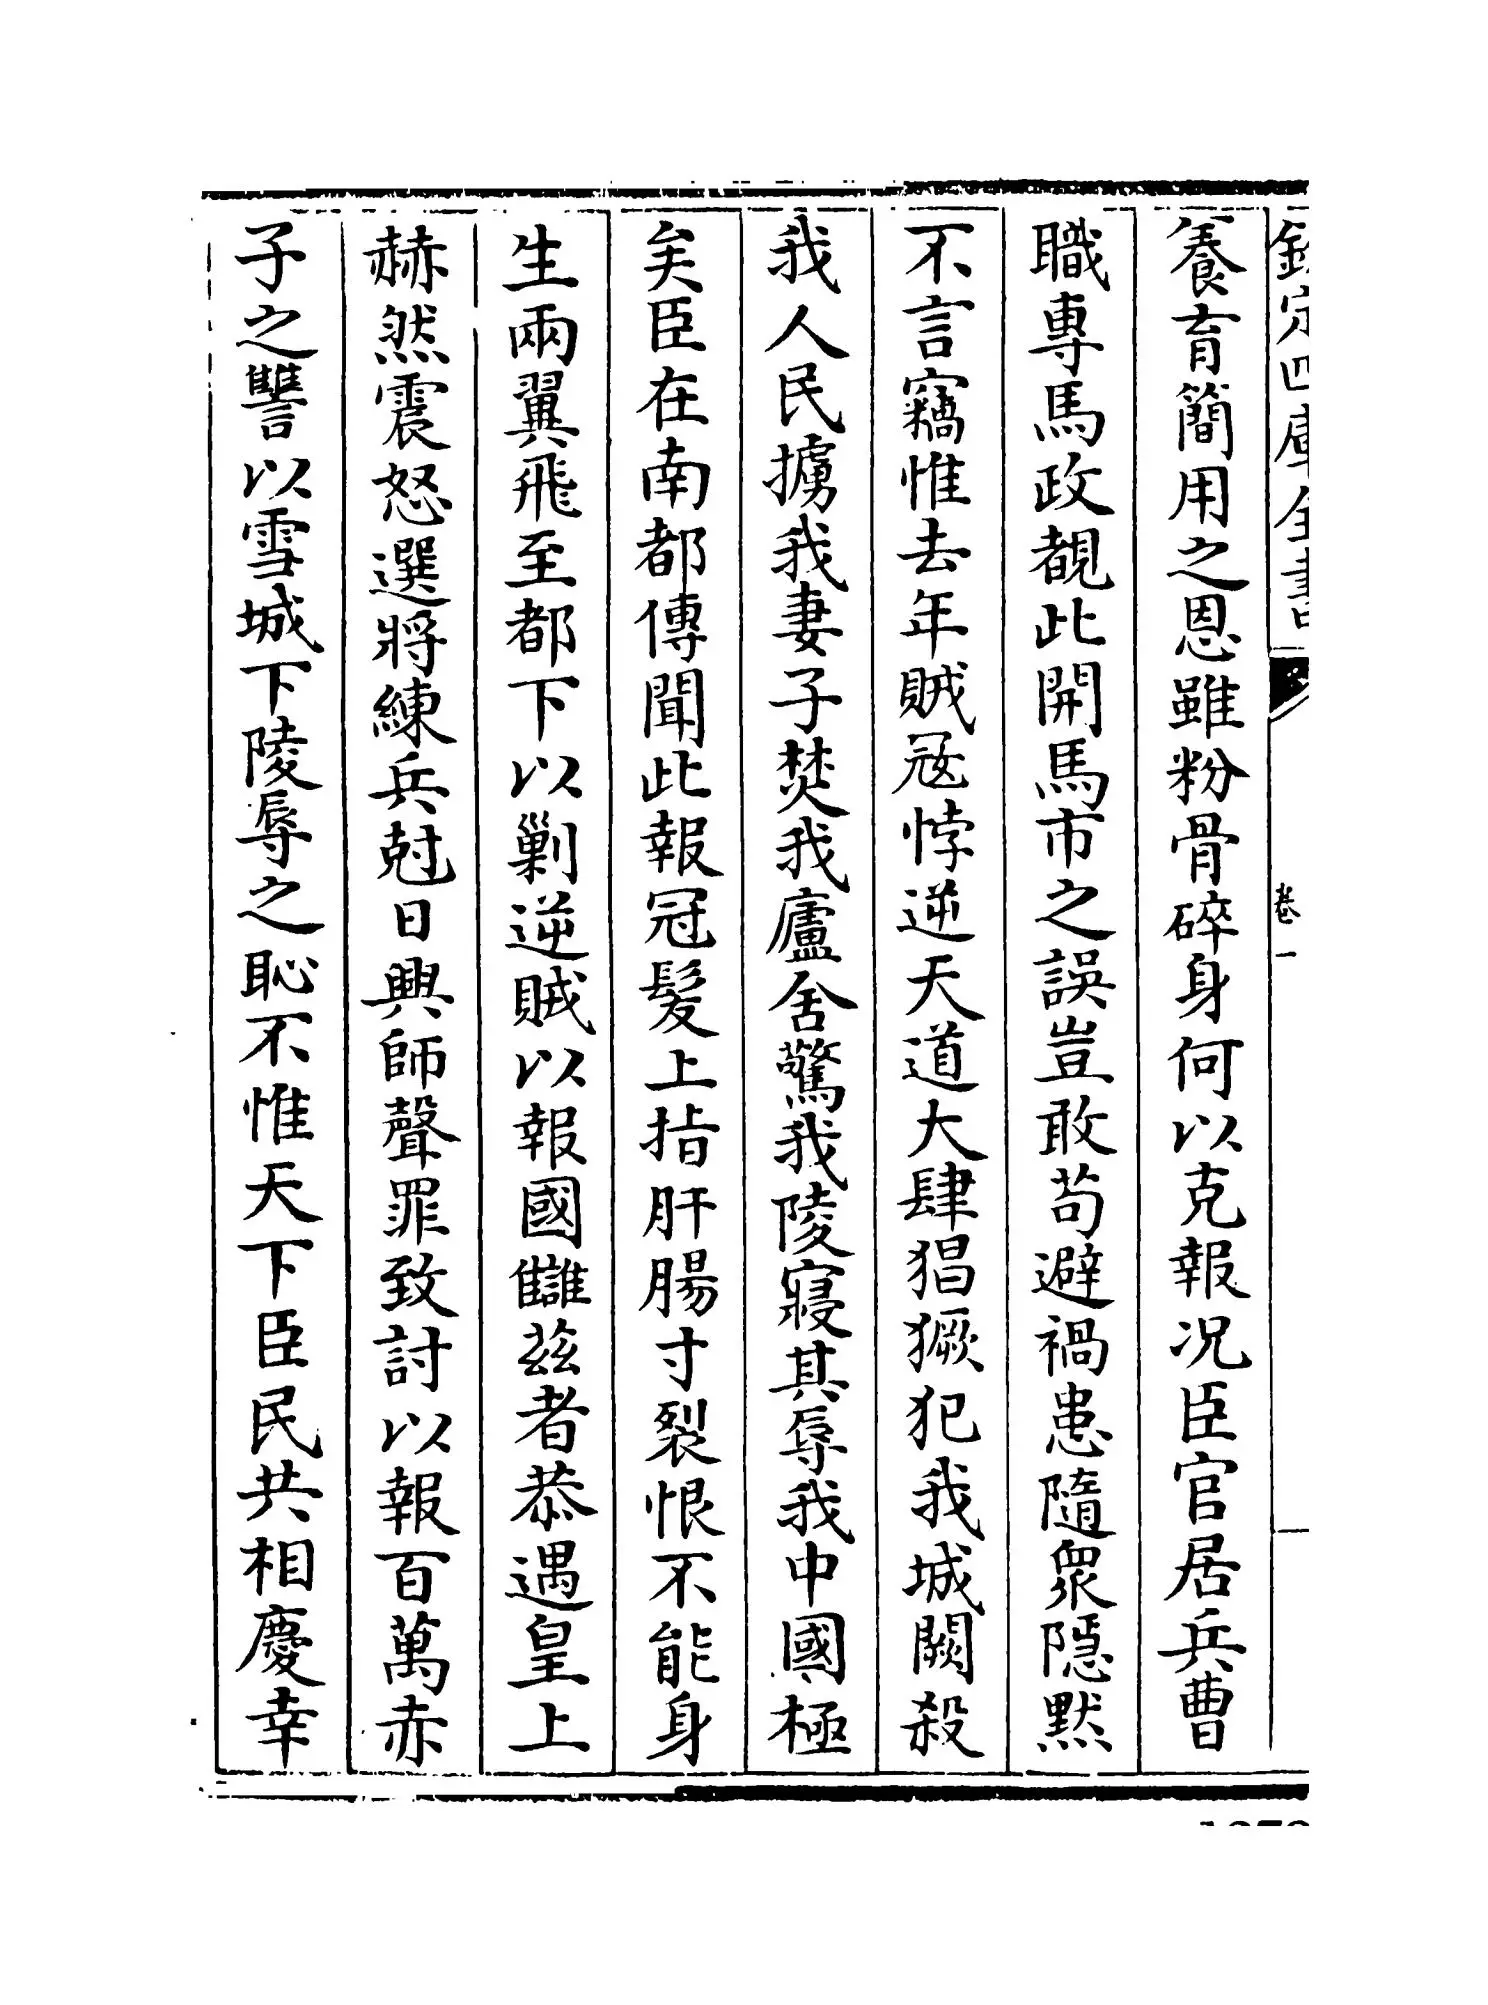 欽定四庫全書
卷一
養育簡用之恩雖粉骨碎身何以克報况臣官居兵曹
職專馬政覩此開馬市之誤豈敢苟避禍患隨衆隱默
不言竊惟去年賊冦悖逆天道大肆猖獗犯我城闕殺
我人民擄我妻子焚我廬舍驚我陵寢其辱我中國極
矣臣在南都傳聞此報冠髪上指肝腸寸裂恨不能身
生兩翼飛至都下以剿逆賊以報國讎兹者恭遇皇上
赫然震怒選將練兵尅日興師聲罪致討以報百萬赤
子之讐以雪城下陵辱之恥不惟天下臣民共相慶幸